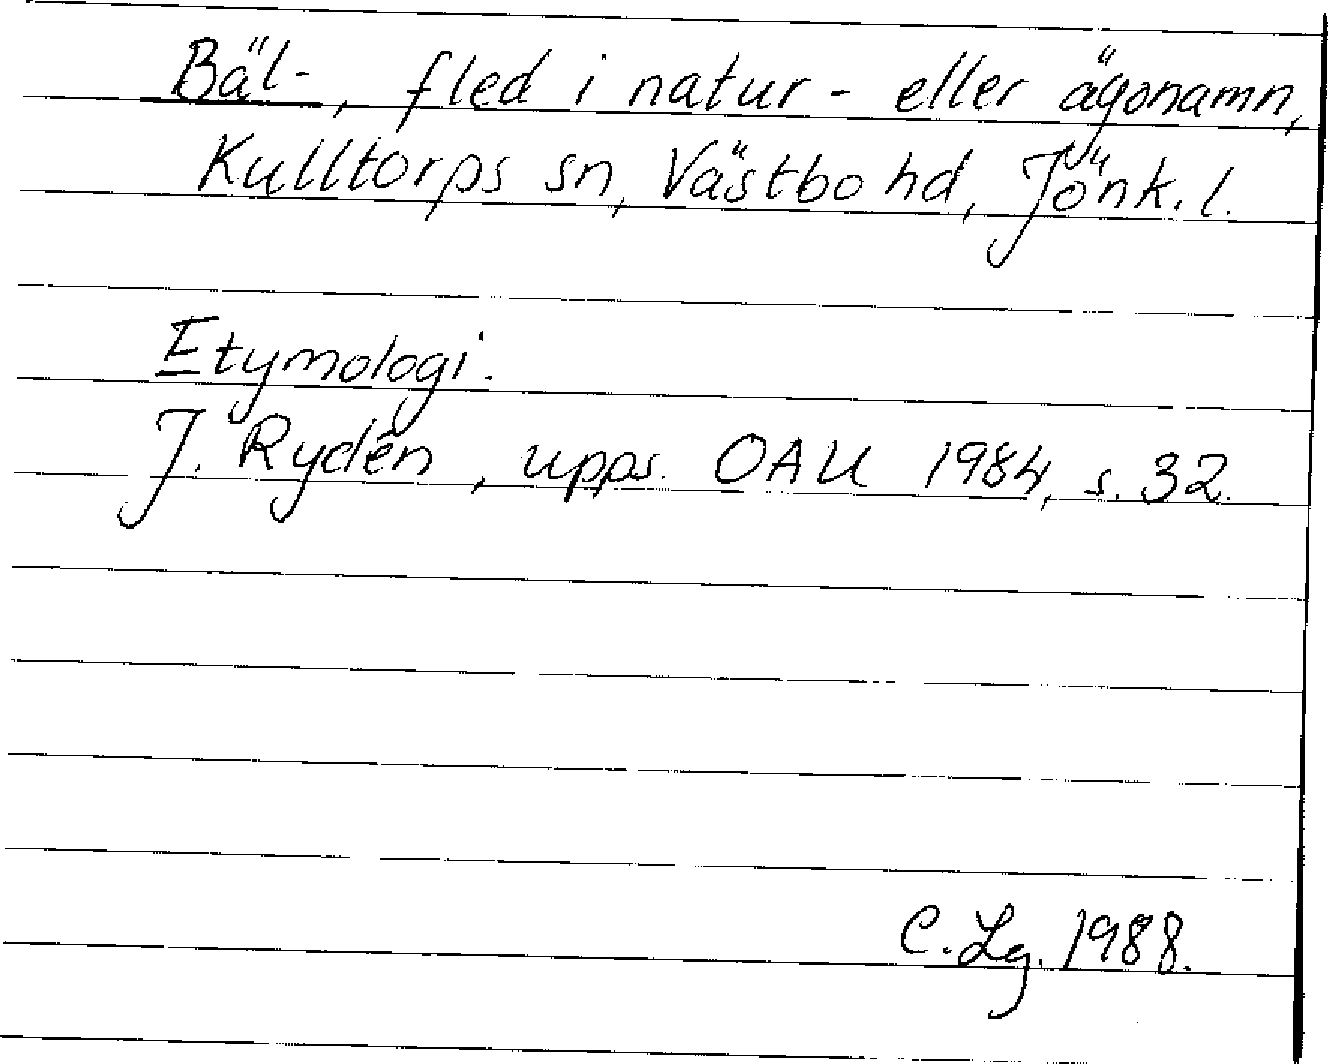 Bäl-, fled i natur- eller ägonamn,
Kulltorps sn, Västbo hd, Jönk.l.
Etymologi.
J. Rydén, upps. OAU 1984, s. 32.
C. Lg. 1988.